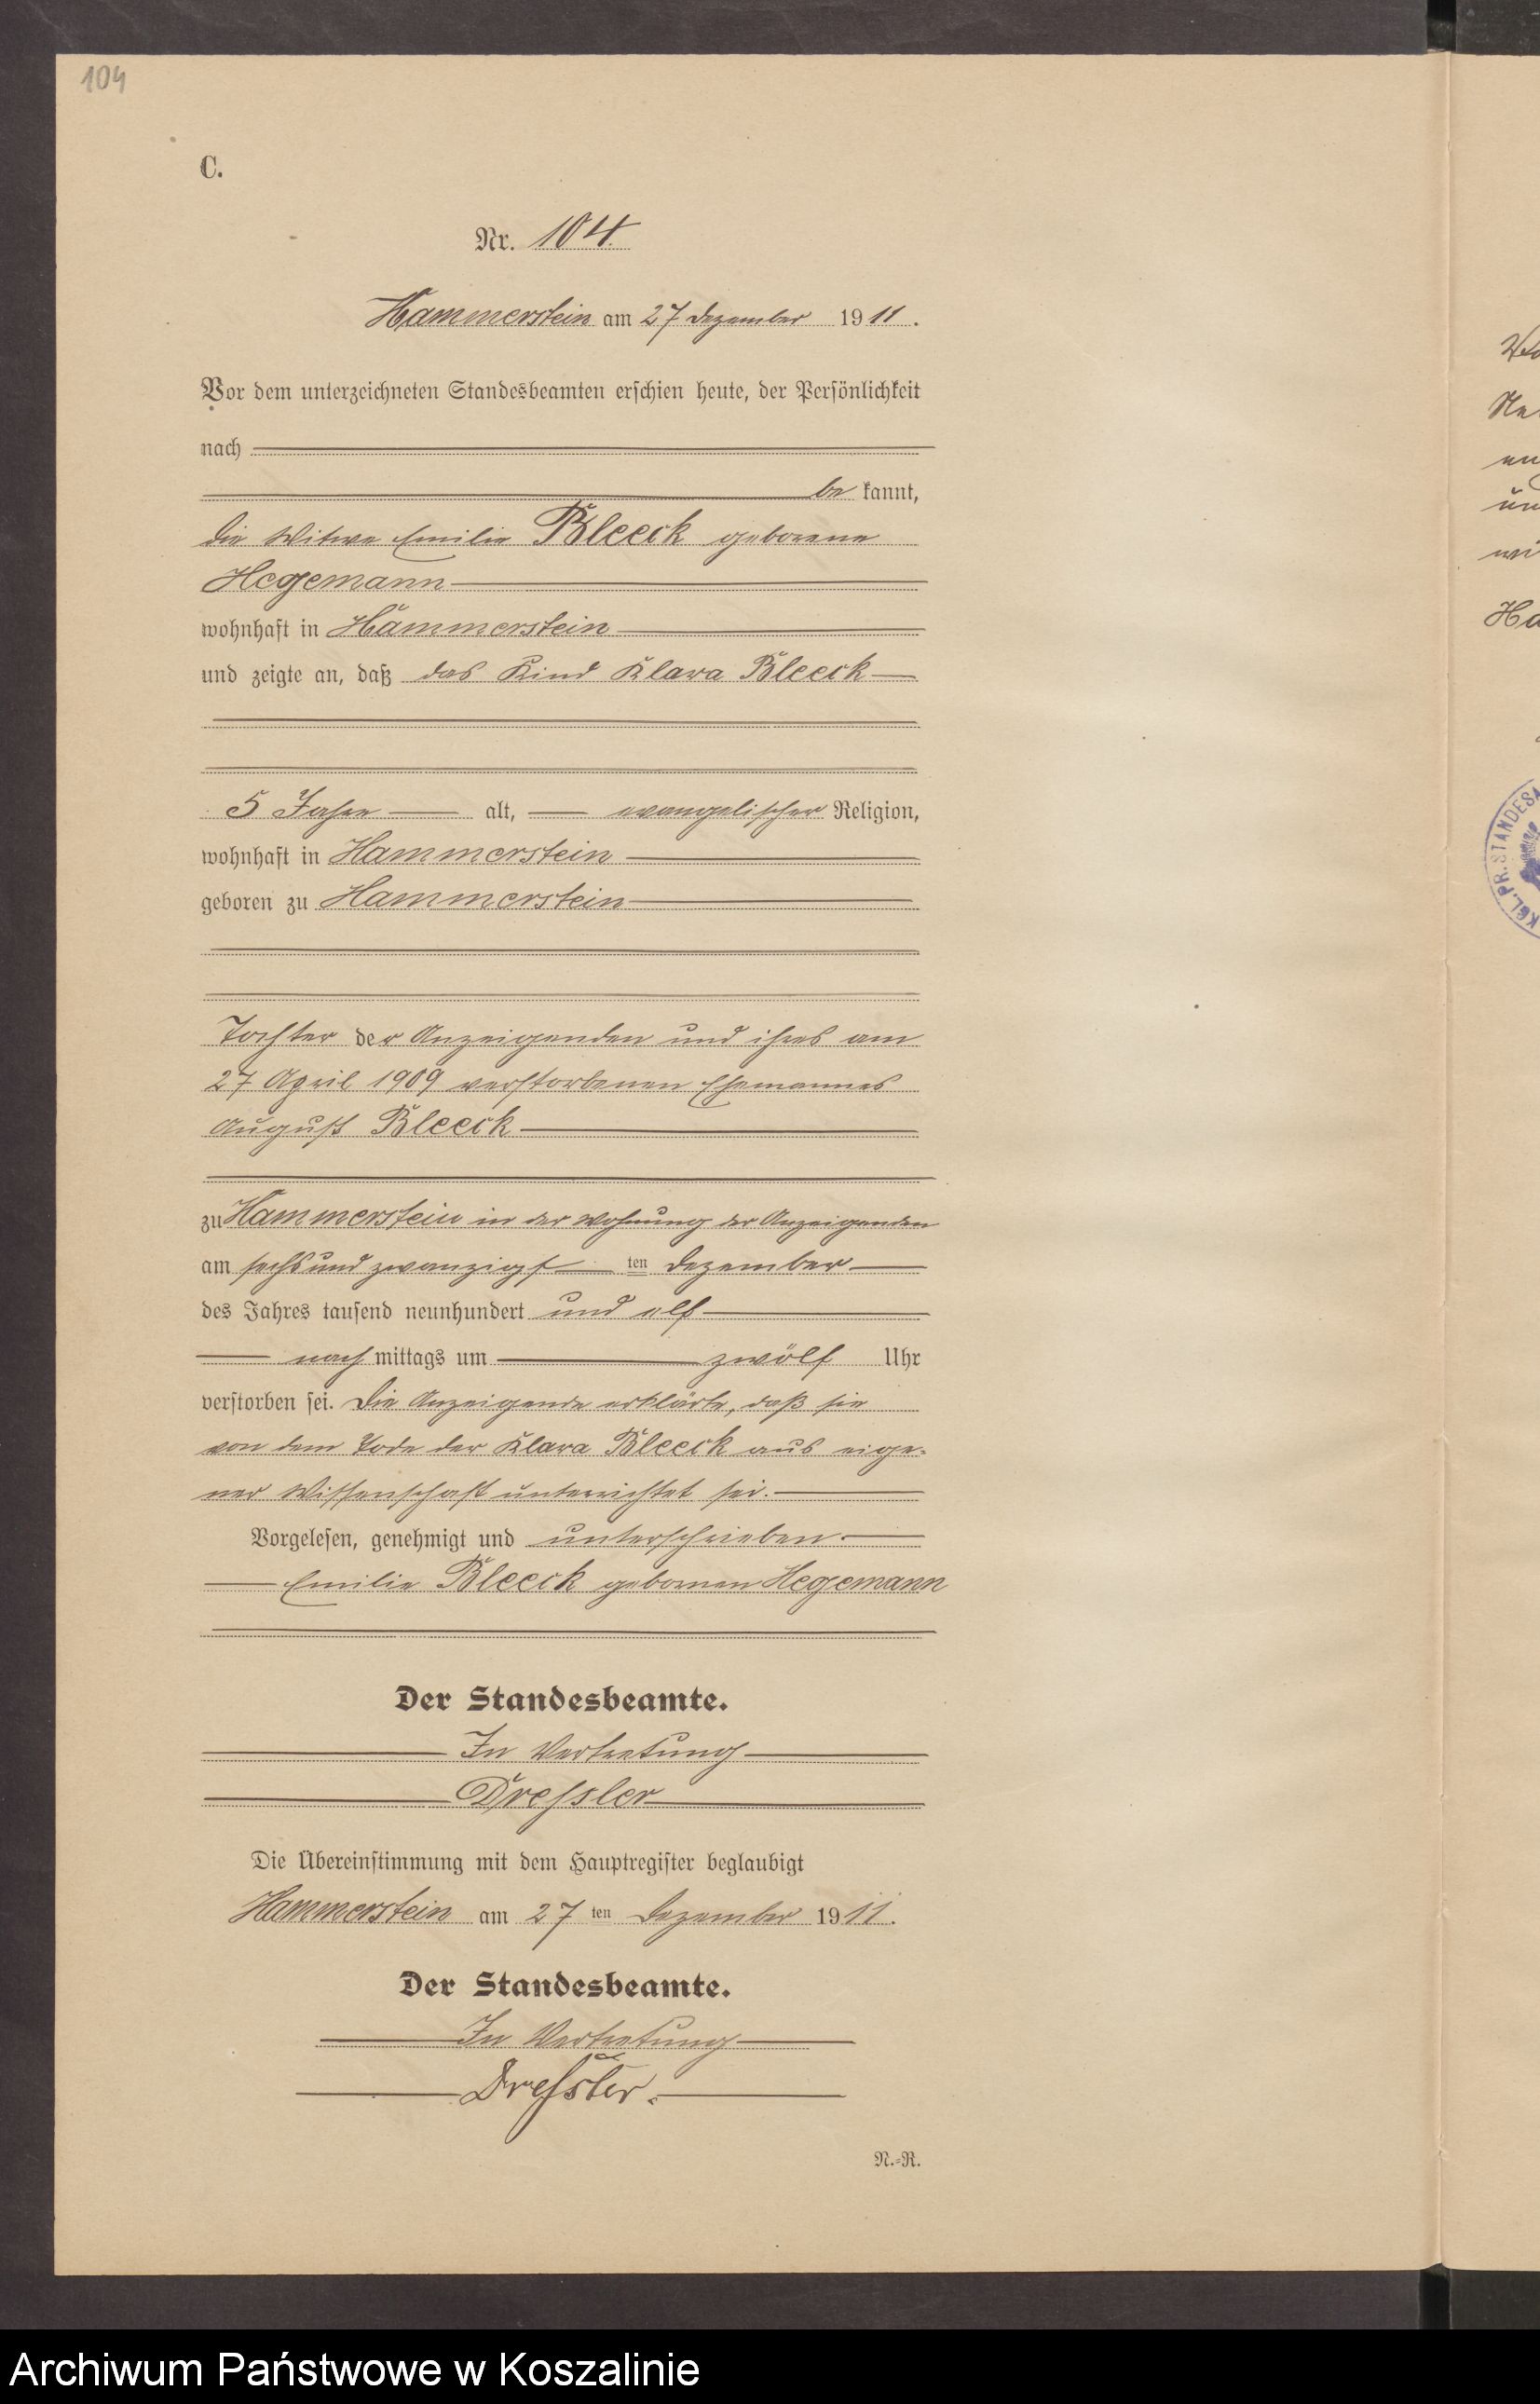 104
C.
Nr. 104.
Hammerstein am 27 Dezember 1911.
Vor dem unterzeichneten Standesbeamten erschien heute, der Persönlichkeit
nach
be kannt,
die Witwe Emilie Bleeck geborene
Hegemann
wohnhaft in Hammerstein
und zeigte an, daß das Kind Klara Bleeck
5 Jahre alt, evangelischer Religion,
wohnhaft in Hammerstein
geboren zu Hammerstein
Tochter der Anzeigenden und ihres am
27 April 1909 verstorbenen Ehemannes
August Bleeck
zu Hammerstein in der Wohnung der Anzeigenden
am sechsundzwanzigsten Dezember
des Jahres tausend neunhundert und elf
nach mittags um zwölf Uhr
verstorben sei. Die Anzeigende erklärte, daß sie
von dem Tode der Klara Bleeck aus eige-
ner Wissenschaft unterrichtet sei.
Vorgelesen, genehmigt und unterschrieben.
Emilie Bleeck geborenen Hegemann
Der Standesbeamte.
In Vertretung
Dressler
Die Übereinstimmung mit dem Hauptregister beglaubigt
Hammerstein am 27 ten Dezember 1911.
Der Standesbeamte.
In Vertretung
Dressler.
N.-R.
KGL. PR. STANDESA
Archiwum Państwowe w Koszalinie